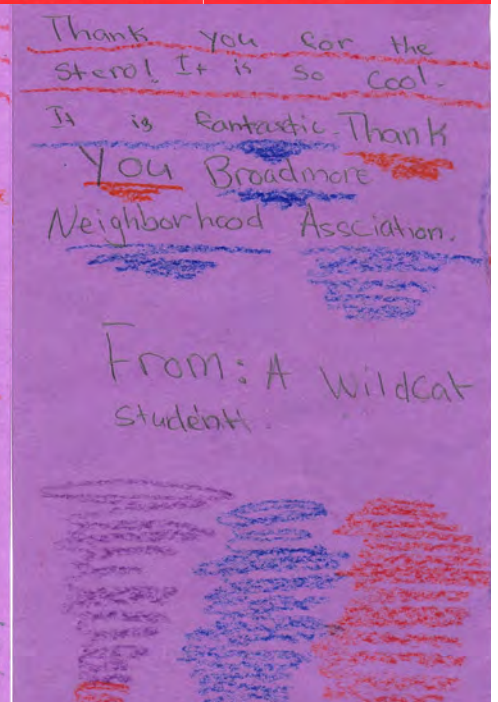 Thank you for the
stero! It is so cool.
It is fantastic. Thank
You Broadmore
Neighborhood Assciation.
From: A Wildcat
student.